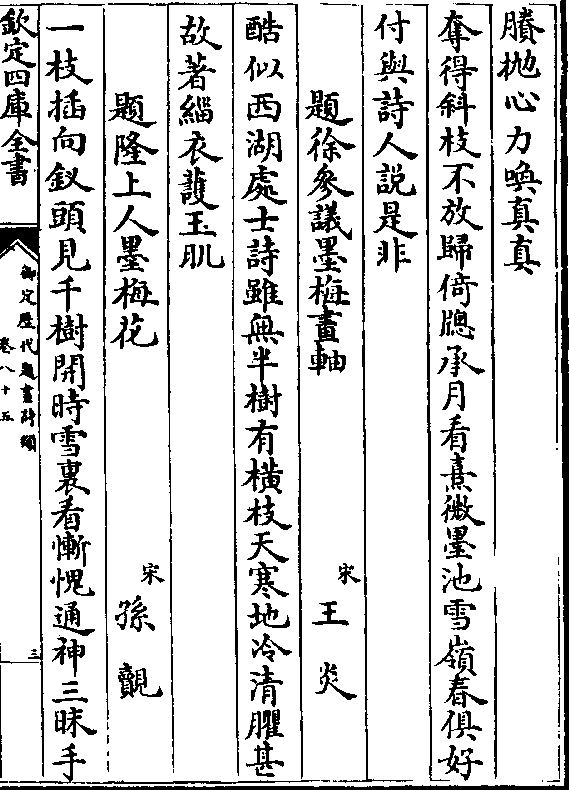 賸抛心力喚真真
奪得斜枝不放歸倚牎承月看熹微墨池雪嶺春俱好
付與詩人説是非
題徐參議墨梅畫軸
宋王炎
酷似西湖處士詩雖無半樹有橫枝天寒地冷清臞甚
故著緇衣䕶玉肌
題隆上人墨梅花
宋孫覿
一枝插向釵頭見千樹開時雪裏看慚愧通神三昧手
欽定四庫全書
御定歷代題畫詩類
卷八十五
三